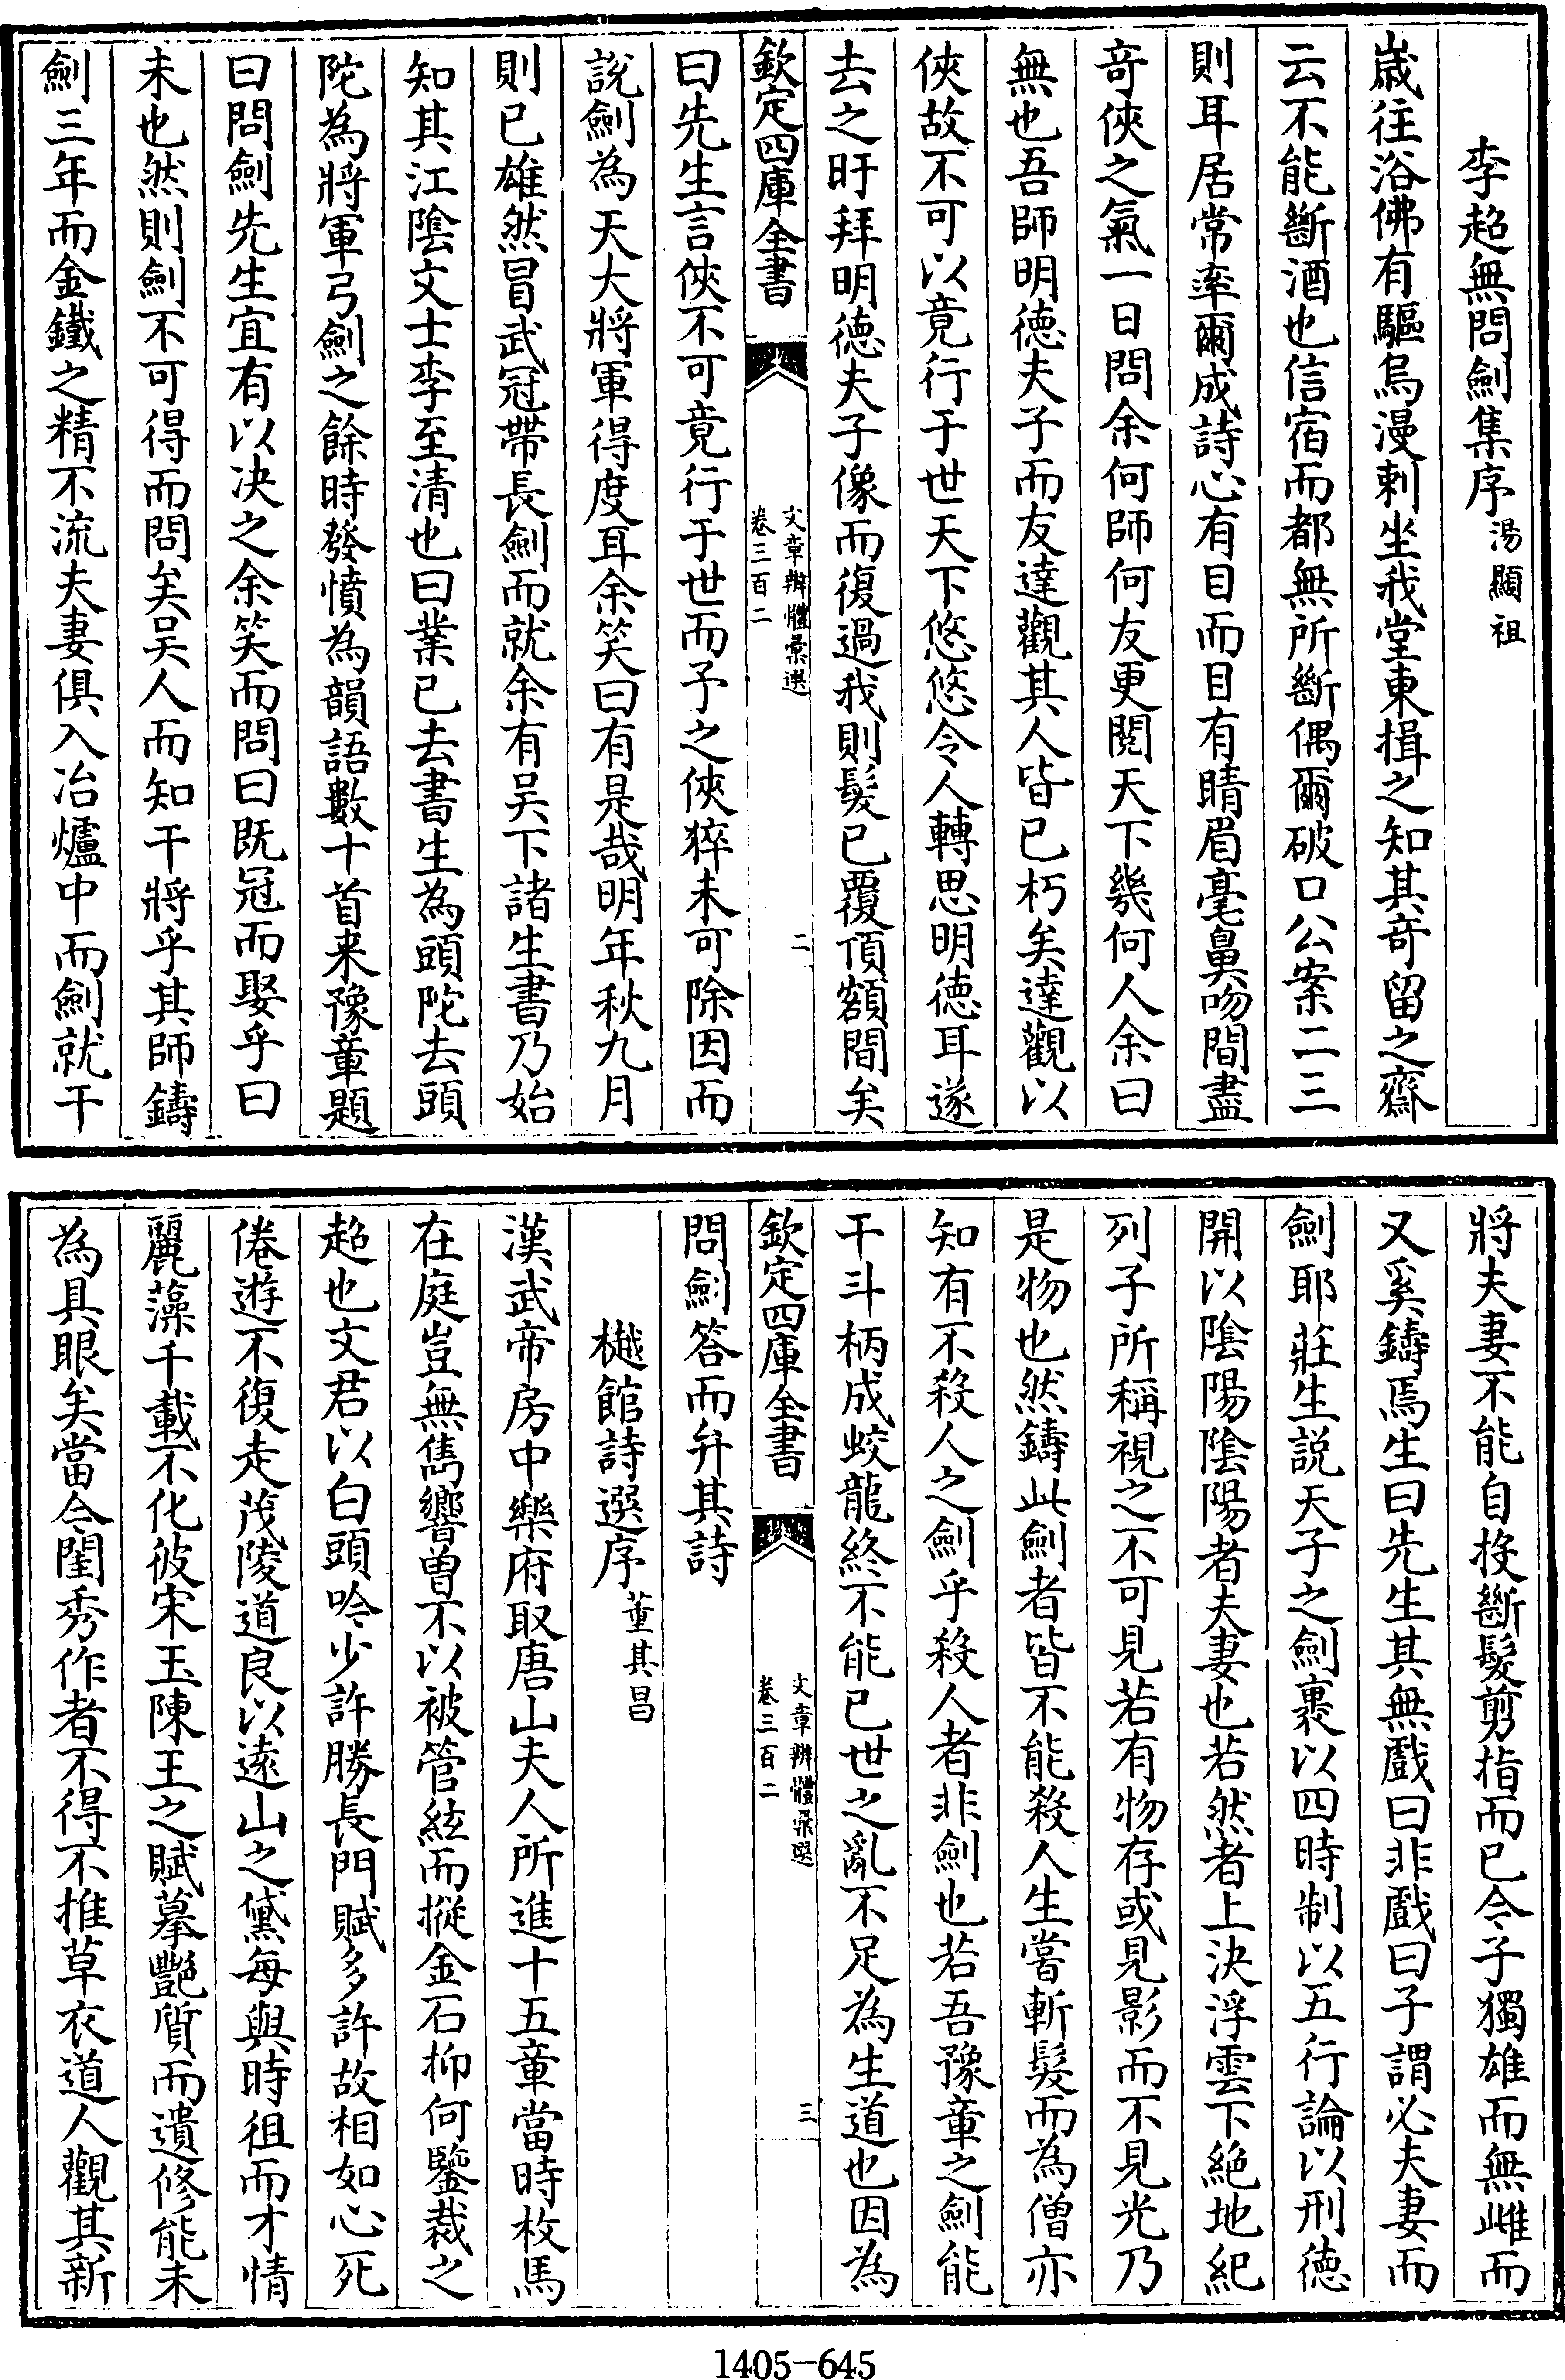 李超無問劍集序湯顯祖
嵗往浴佛有驅烏漫刺坐我堂東揖之知其竒留之齋
云不能斷酒也信宿而都無所斷偶爾破口公案二三
則耳居常率爾成詩心有目而目有睛眉毫鼻吻間盡
竒俠之氣一日問余何師何友更閱天下幾何人余曰
無也吾師明徳夫子而友達觀其人皆已朽矣達觀以
俠故不可以竟行于世天下悠悠令人轉思明徳耳遂
去之盱拜明徳夫子像而復過我則髮已覆頂額間矣
欽定四庫全書
文章辨體彚選
卷三百二
二
曰先生言俠不可竟行于世而予之俠猝未可除因而
說劍為天大將軍得度耳余笑曰有是哉明年秋九月
則已雄然冒武冠帶長劍而就余有吴下諸生書乃始
知其江隂文士李至清也曰業已去書生為頭陀去頭
陀為將軍弓劍之餘時發憤為韻語數十首来豫章題
曰問劍先生宜有以决之余笑而問曰既冠而娶乎曰
未也然則劍不可得而問矣吴人而知干將乎其師鑄
劍三年而金鐵之精不流夫妻俱入冶爐中而劍就干
將夫妻不能自投斷髮剪指而已今子獨雄而無雌而
又奚鑄焉生曰先生其無戲曰非戲曰子謂必夫妻而
劍耶莊生説天子之劍裹以四時制以五行論以刑徳
開以隂陽隂陽者夫妻也若然者上決浮雲下絶地紀
列子所稱視之不可見若有物存或見影而不見光乃
是物也然鑄此劍者皆不能殺人生嘗斬髮而為僧亦
知有不殺人之劍乎殺人者非劍也若吾豫章之劍能
干斗柄成蛟龍終不能已世之亂不足為生道也因為
欽定四庫全書
文章辨體彚選
卷三百二
三
問劍答而弁其詩
樾館詩選序董其昌
漢武帝房中樂府取唐山夫人所進十五章當時枚馬
在庭豈無雋響曽不以被管絃而摐金石抑何鑒裁之
超也文君以白頭吟少許勝長門賦多許故相如心死
倦遊不復走茂陵道良以逺山之黛每與時徂而才情
麗藻千載不化彼宋玉陳王之賦摹艷質而遺修能未
為具眼矣當今閨秀作者不得不推草衣道人觀其新
1405—645